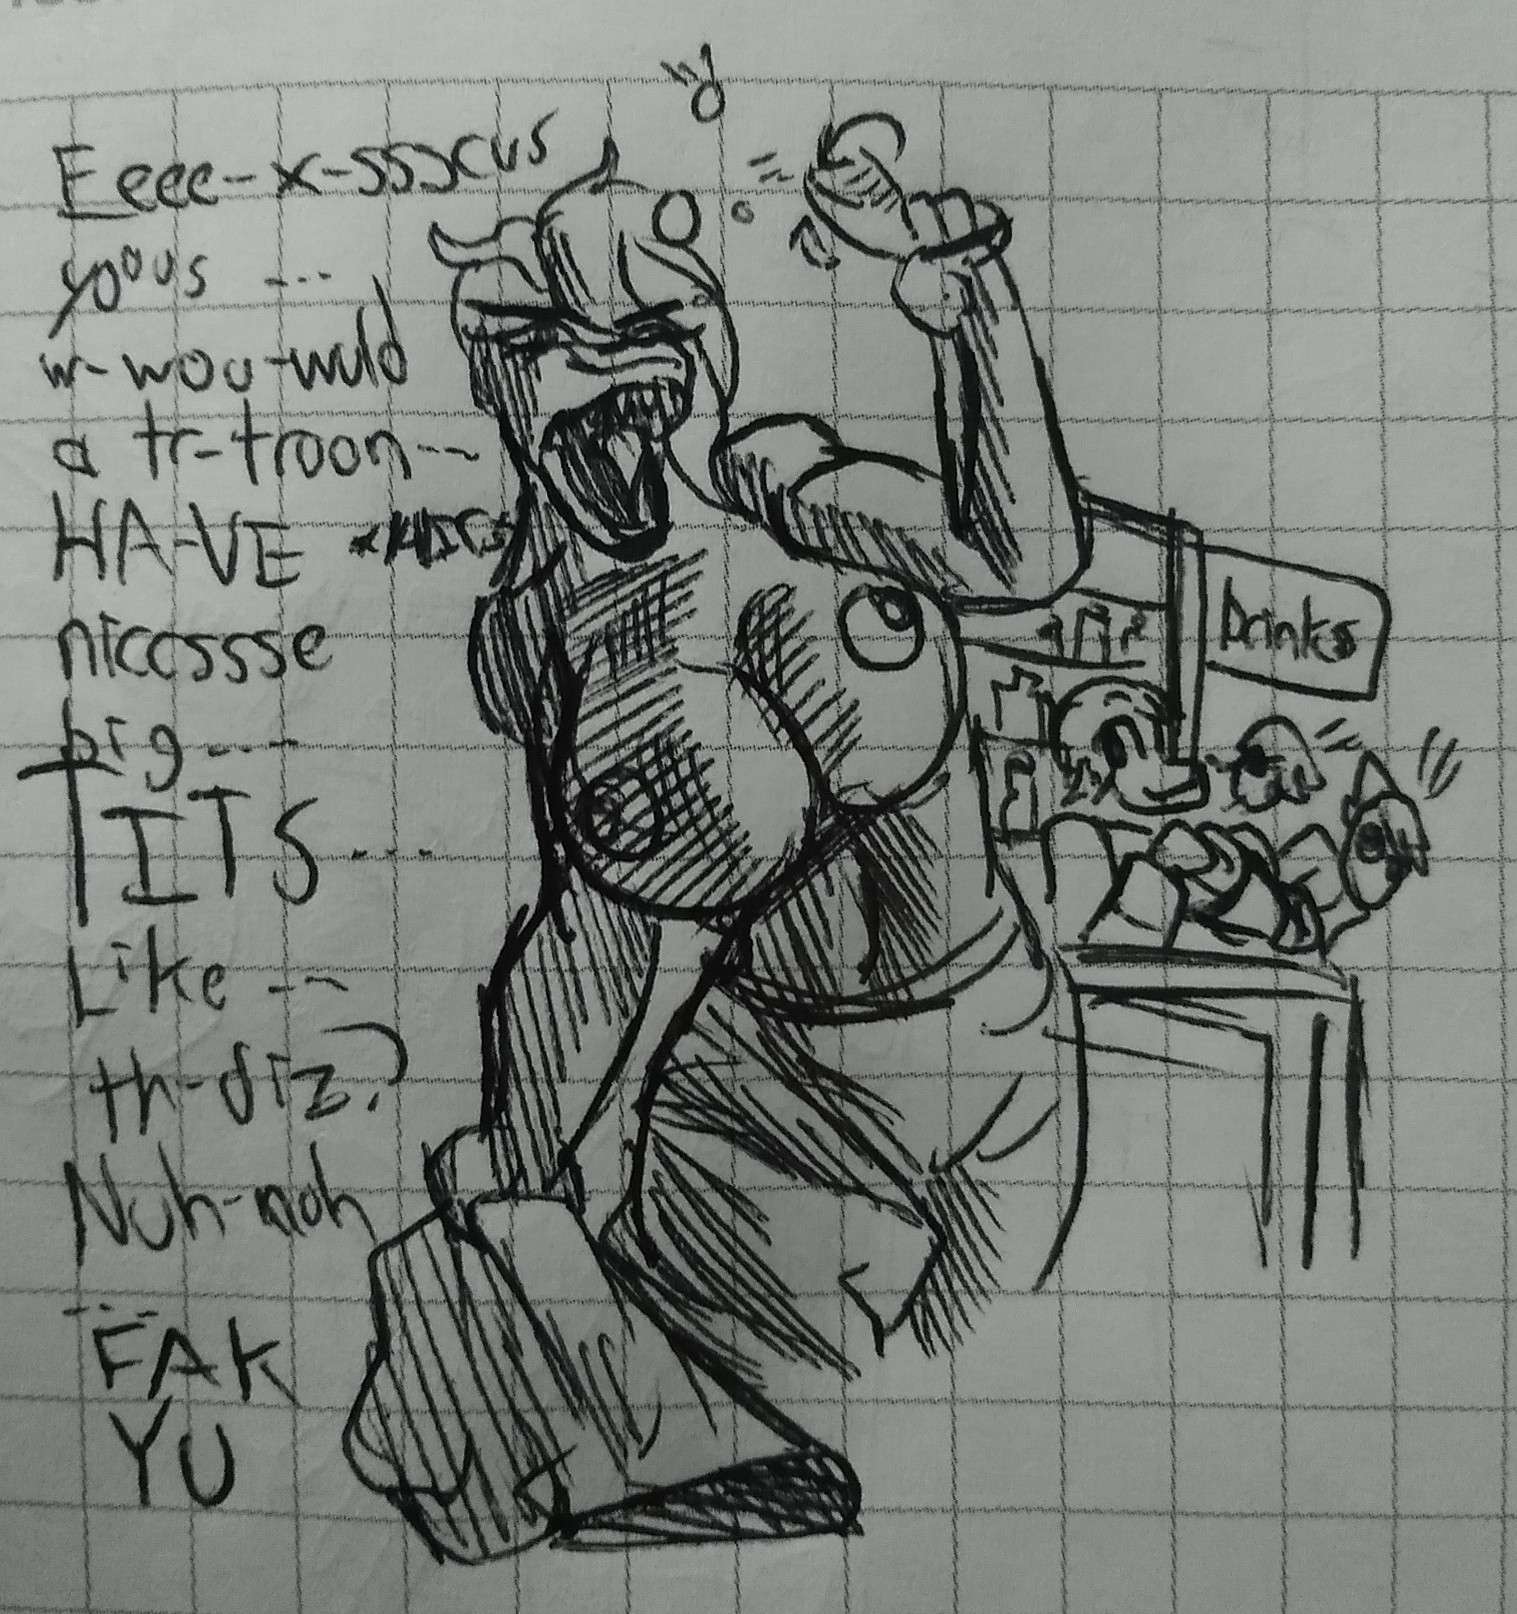 Eeee-x-ssscus
yous ...
w-woo-wuld
a tr-troon--
HA-VE
niccssse
big...
TITS...
Like --
th-diz?
Nuh-noh
...
FAK
YU
Drinks